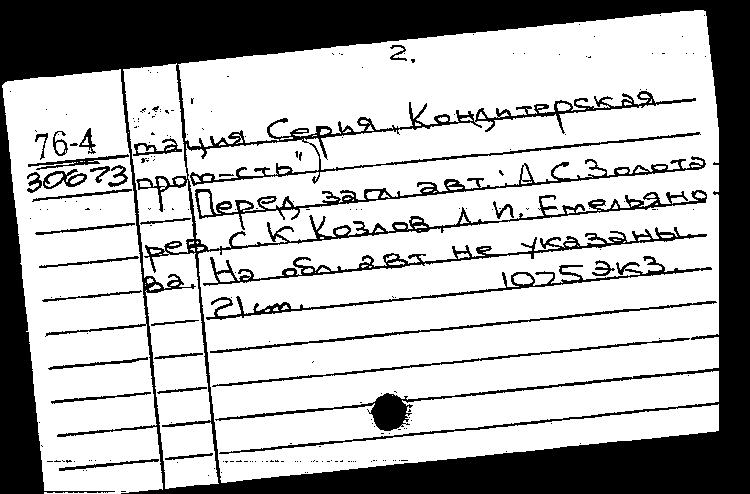 2.
76-4
30673
тация. Серия "Кондитерская
пром-сть")
Перед загл. авт.: А. С. Золота-
рев, С. К. Козлов, Л. И. Емельяно-
ва. На обл. авт. не указаны.
21 cm. 1075 экз.